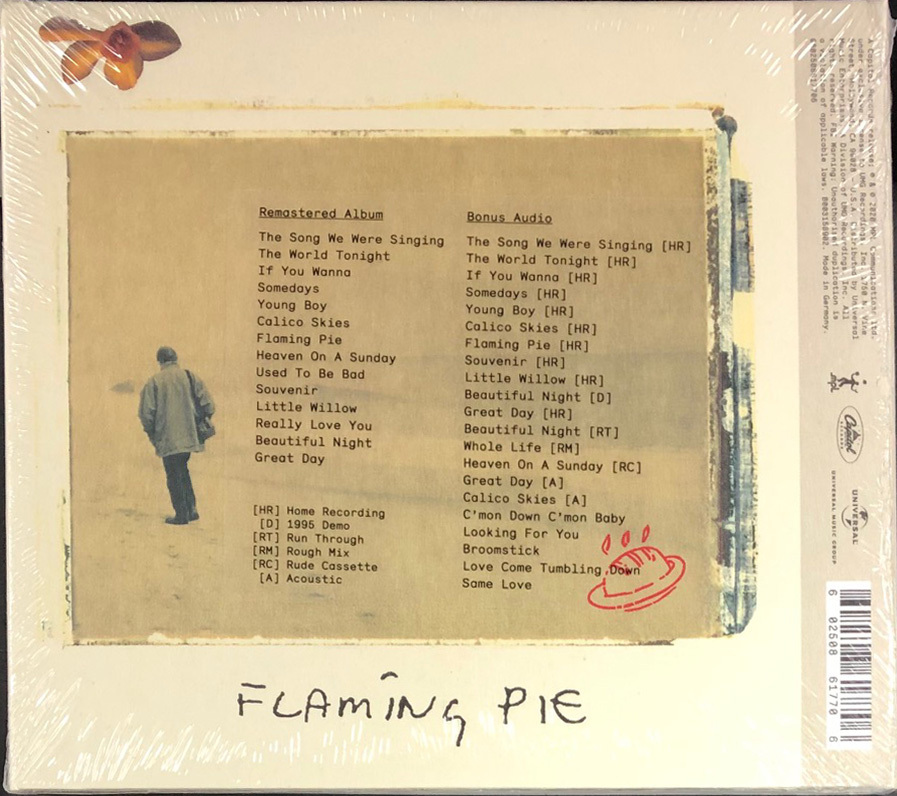 Remastered Album
The Song We Were Singing
The World Tonight
If You Wanna
Somedays
Young Boy
Calico Skies
Flaming Pie
Heaven On A Sunday
Used To Be Bad
Souvenir
Little Willow
Really Love You
Beautiful Night
Great Day
[HR] Home Recording
[D] 1995 Demo
[RT] Run Through
[RM] Rough Mix
[RC] Rude Cassette
[A] Acoustic
Bonus Audio
The Song We Were Singing [HR]
The World Tonight [HR]
If You Wanna [HR]
Somedays [HR]
Young Boy [HR]
Calico Skies [HR]
Flaming Pie [HR]
Souvenir [HR]
Little Willow [HR]
Beautiful Night [D]
Great Day [HR]
Beautiful Night [RT]
Whole Life [RM]
Heaven On A Sunday [RC]
Great Day [A]
Calico Skies [A]
C'mon Down C'mon Baby
Looking For You
Broomstick
Love Come Tumbling Down
Same Love
FLAMING PIE
A Capitol Records release; ℗ & © 2020 MPL Communications Ltd.
under exclusive license to UMG Recordings, Inc. 1750 N. Vine
Street, Hollywood, CA 90028 - U.S.A. Distributed by Universal
Music Enterprises, a Division of UMG Recordings, Inc. All
rights reserved. FBI Warning: Unauthorized duplication is
a violation of applicable laws. Made in Germany.
mpl
Capitol
RECORDS
UNIVERSAL
UNIVERSAL MUSIC GROUP
6 02508 61770 6